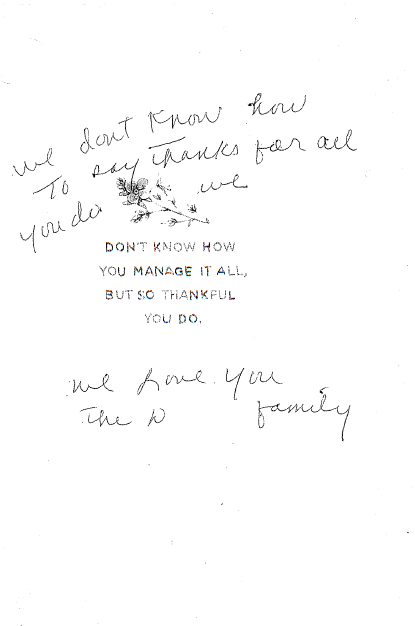 we don't know how
to say thanks for all
you do we
DON'T KNOW HOW
YOU MANAGE IT ALL,
BUT SO THANKFUL
YOU DO.
we love you
The D family